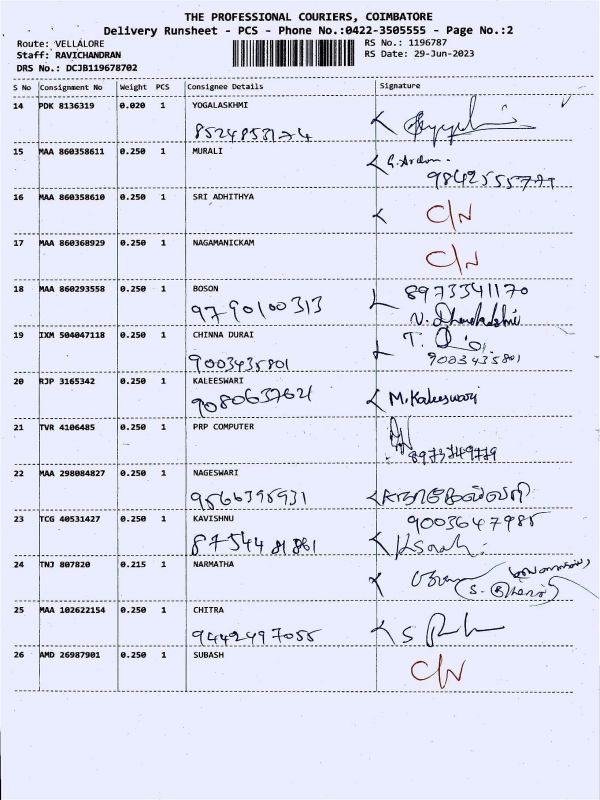 THE PROFESSIONAL COURIERS, COIMBATORE
Delivery Runsheet - PCS - Phone No.:0422-3505555 - Page No.:2
Route: VELLALORE
RS No.: 1196787
Staff: RAVICHANDRAN
RS Date: 29-Jun-2023
DRS No.: DCJB119678702
S No Consignment No Weight PCS Consignee Details Signature
14 PDK 8136319 0.020 1 YOGALASKHMI
8524853174
15 MAA 860358611 0.250 1 MURALI
16 MAA 860358610 0.250 1 SRI ADHITHYA
C/N
17 MAA 860368929 0.250 1 NAGAMANICKAM
C/N
18 MAA 860293558 0.250 1 BOSON 8973341170
9790100313
19 IXM 504047118 0.250 1 CHINNA DURAI
9003435801 9003435801
20 RJP 3165342 0.250 1 KALEESWARI
9080637621 M.Kaleeswari
21 TVR 4106485 0.250 1 PRP COMPUTER
22 MAA 298084827 0.250 1 NAGESWARI
9566395931
23 TCG 40531427 0.250 1 KAVISHNU 9003647985
24 TNJ 807820 0.215 1 NARMATHA
25 MAA 102622154 0.250 1 CHITRA
9442497055
26 AMD 26987901 0.250 1 SUBASH
C/N